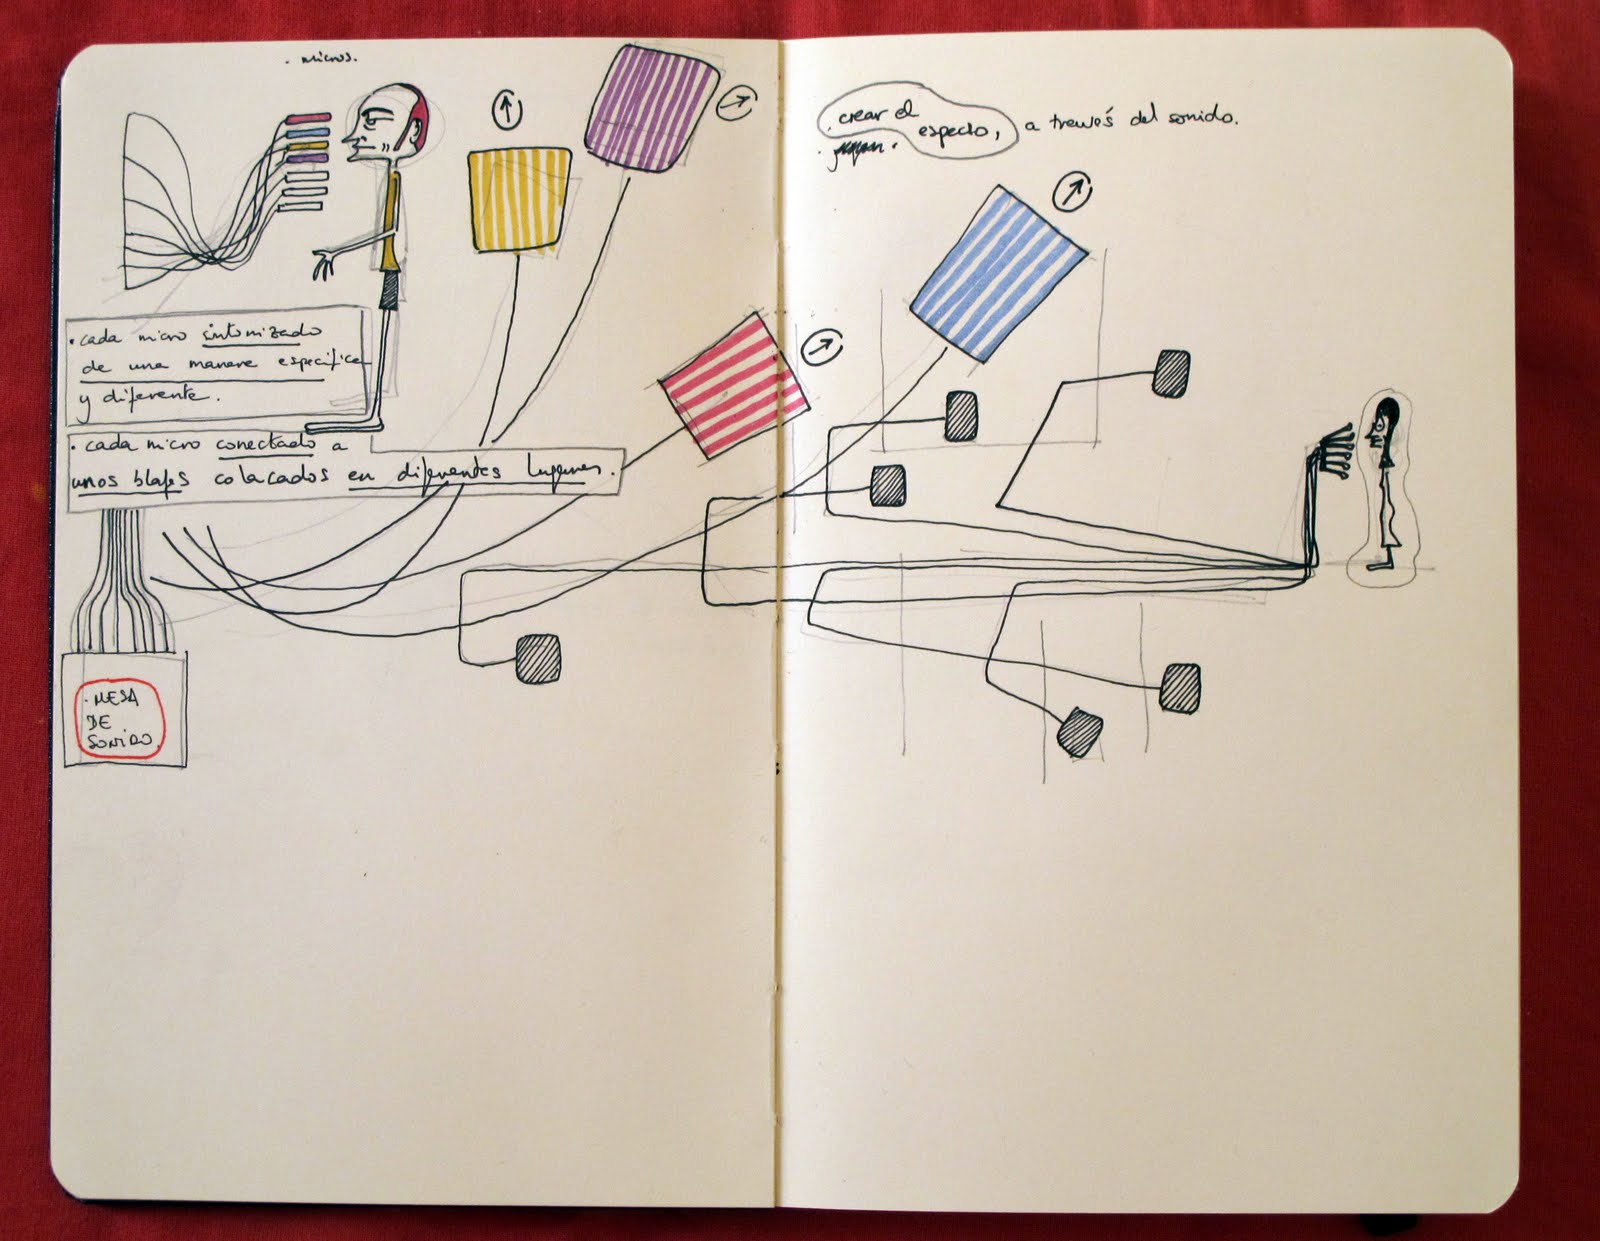 . micros.
• cada micro sintonizado
de una manera especifica
y diferente.
• cada micro conectado a
unos blafes colacados en diferentes lugares.
. MESA
DE
SONIDO.
. crear el
espacio, a través del sonido.